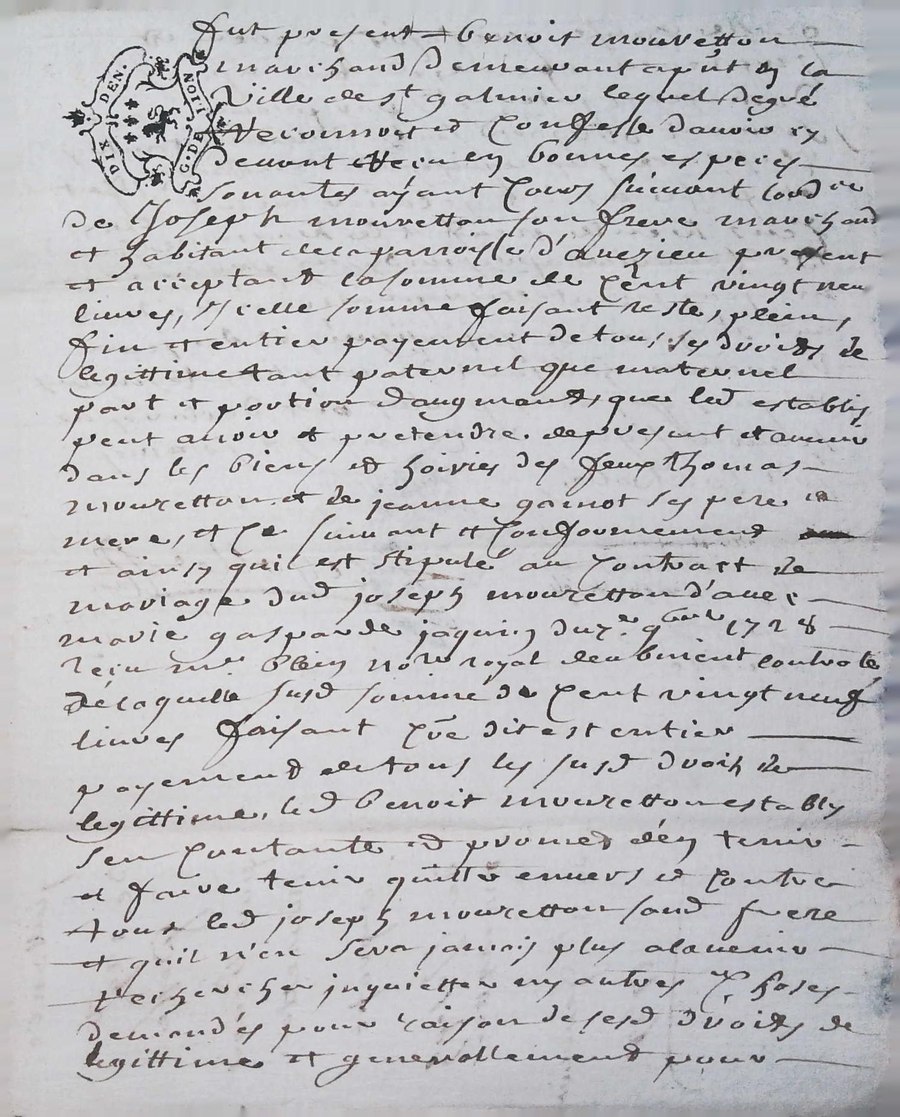 DIX DEN. G. DE NOTI
fut present benoit mouretton
marchand demeurant a pnt en la
Ville de st galmier lequel degré
Reconnoit et Confesse d'avoir cy
devant Receu en bonnes especes
sonantes ayant Cours suivant lordce
de Joseph mouretton son frere marchand
et habitant de la parroisse d'avezieu present
et acceptant la somme de Cent vingt neu
livres, Icelle somme faisant reste, plein,
fin et entier payement de tous ses droits de
legittime tant paternel que maternel
part et portion daugmands, que led establis
peut avoir et pretendre de present et avenir
dans les biens et hoiries des feux thomas
mouretton et de jeanne garnot ses pere et
mere, et Ce suivant et Conformement
et ainsy quil est stipulé au Contract de
mariage dud joseph mouretton d'avec
marie gasparde jaquin du 7e 9bre 1728
reçu me blein nore royal deubment controlé
De laquelle susd somme de Cent vingt neuf
livres faisant Cõe dit est entier
payement de tous les susd droits de
legittime, led benoit mouretton establis
sen Contante et promet d'en tenir
et faire tenir quitte envers et Contre
tous led joseph mouretton sond frere
et quil n'en sera jamais plus alavenir
rechercher inquietter ny autres Choses
demandés pour raison de sesd droits de
legittime et generallement pour